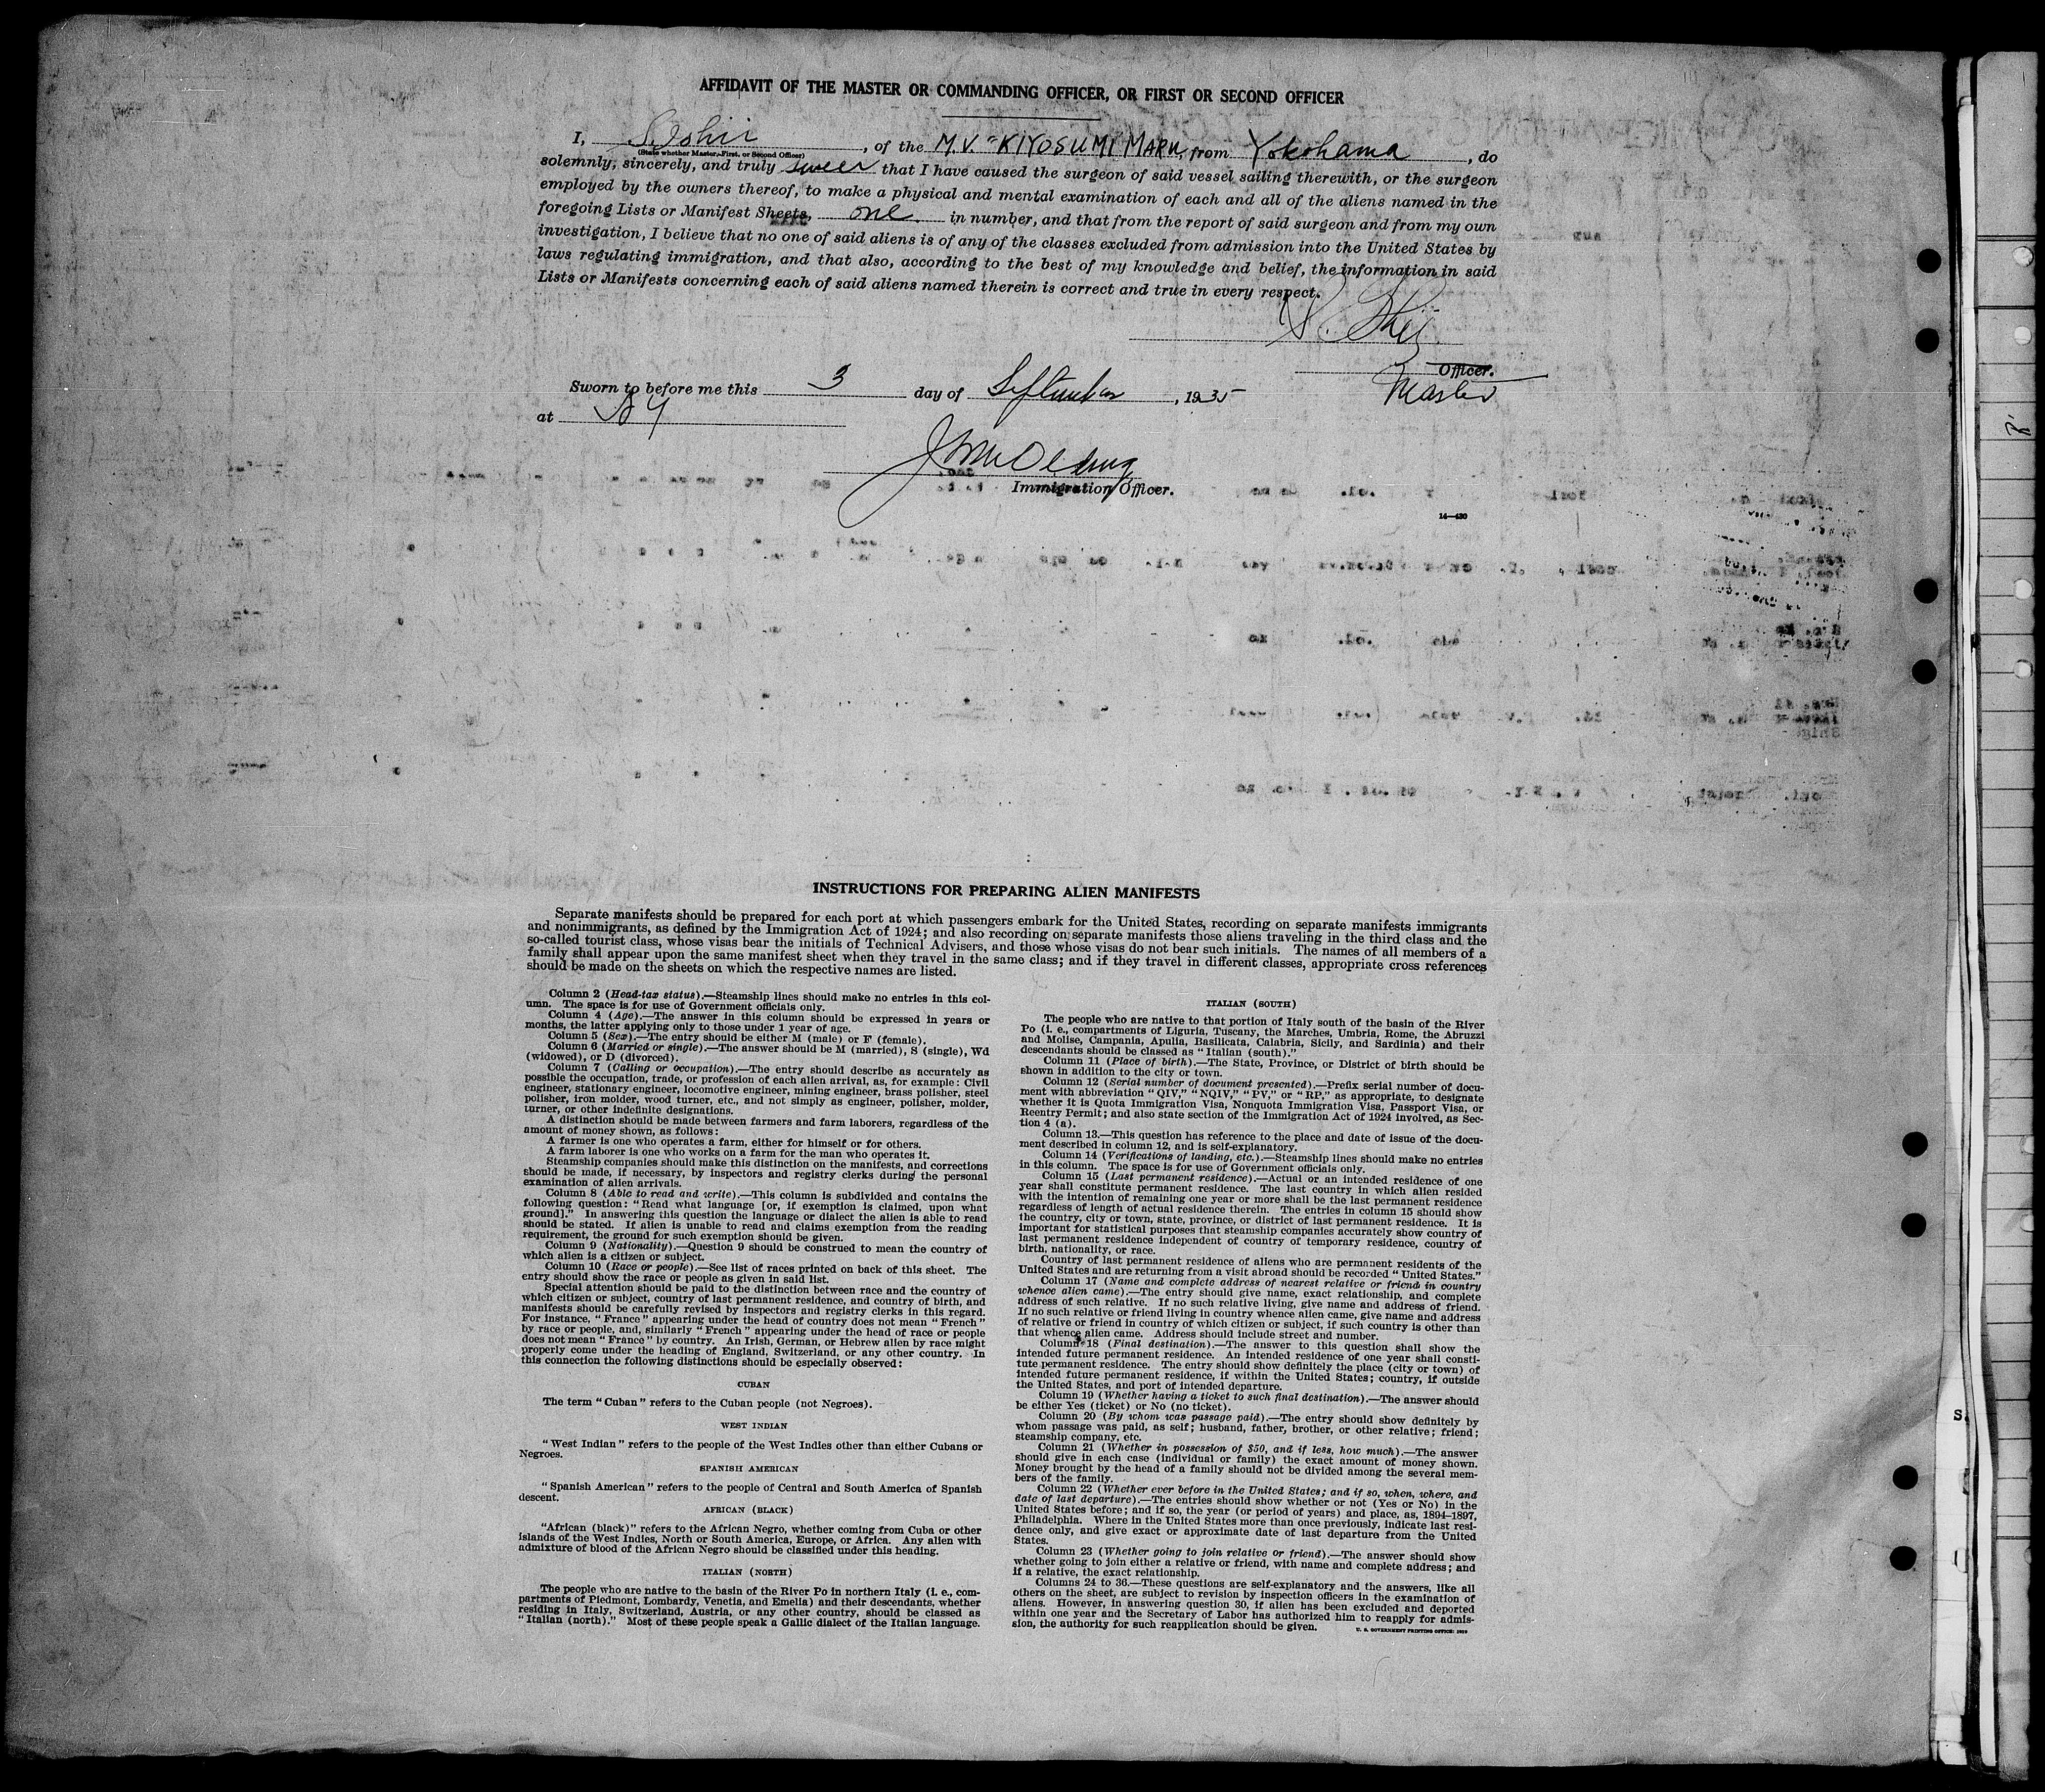 AFFIDAVIT OF THE MASTER OR COMMANDING OFFICER, OR FIRST OR SECOND OFFICER
I, S. Ishii, of the M.V. "KIYOSUMI MARU, from Yokohama, do
(State whether Master, First, or Second Officer)
solemnly, sincerely, and truly swear that I have caused the surgeon of said vessel sailing therewith, or the surgeon
employed by the owners thereof, to make a physical and mental examination of each and all of the aliens named in the
foregoing Lists or Manifest Sheets, one in number, and that from the report of said surgeon and from my own
investigation, I believe that no one of said aliens is of any of the classes excluded from admission into the United States by
laws regulating immigration, and that also, according to the best of my knowledge and belief, the information in said
Lists or Manifests concerning each of said aliens named therein is correct and true in every respect.
S. Ishii
Officer.
Master
Sworn to before me this 3 day of September, 1935
at NY
Immigration Officer.
14—430
INSTRUCTIONS FOR PREPARING ALIEN MANIFESTS
Separate manifests should be prepared for each port at which passengers embark for the United States, recording on separate manifests immigrants
and nonimmigrants, as defined by the Immigration Act of 1924; and also recording on separate manifests those aliens traveling in the third class and the
so-called tourist class, whose visas bear the initials of Technical Advisers, and those whose visas do not bear such initials. The names of all members of a
family shall appear upon the same manifest sheet when they travel in the same class; and if they travel in different classes, appropriate cross references
should be made on the sheets on which the respective names are listed.
Column 2 (Head-tax status).—Steamship lines should make no entries in this col-
umn. The space is for use of Government officials only.
Column 4 (Age).—The answer in this column should be expressed in years or
months, the latter applying only to those under 1 year of age.
Column 5 (Sex).—The entry should be either M (male) or F (female).
Column 6 (Married or single).—The answer should be M (married), S (single), Wd
(widowed), or D (divorced).
Column 7 (Calling or occupation).—The entry should describe as accurately as
possible the occupation, trade, or profession of each alien arrival, as, for example: Civil
engineer, stationary engineer, locomotive engineer, mining engineer, brass polisher, steel
polisher, iron molder, wood turner, etc., and not simply as engineer, polisher, molder,
turner, or other indefinite designations.
A distinction should be made between farmers and farm laborers, regardless of the
amount of money shown, as follows:
A farmer is one who operates a farm, either for himself or for others.
A farm laborer is one who works on a farm for the man who operates it.
Steamship companies should make this distinction on the manifests, and corrections
should be made, if necessary, by inspectors and registry clerks during the personal
examination of alien arrivals.
Column 8 (Able to read and write).—This column is subdivided and contains the
following question: "Read what language [or, if exemption is claimed, upon what
ground]." In answering this question the language or dialect the alien is able to read
should be stated. If alien is unable to read and claims exemption from the reading
requirement, the ground for such exemption should be given.
Column 9 (Nationality).—Question 9 should be construed to mean the country of
which alien is a citizen or subject.
Column 10 (Race or people).—See list of races printed on back of this sheet. The
entry should show the race or people as given in said list.
Special attention should be paid to the distinction between race and the country of
which citizen or subject, country of last permanent residence, and country of birth, and
manifests should be carefully revised by inspectors and registry clerks in this regard.
For instance, "France" appearing under the head of country does not mean "French"
by race or people, and, similarly "French" appearing under the head of race or people
does not mean "France" by country. An Irish, German, or Hebrew alien by race might
properly come under the heading of England, Switzerland, or any other country. In
this connection the following distinctions should be especially observed:
CUBAN
The term "Cuban" refers to the Cuban people (not Negroes).
WEST INDIAN
"West Indian" refers to the people of the West Indies other than either Cubans or
Negroes.
SPANISH AMERICAN
"Spanish American" refers to the people of Central and South America of Spanish
descent.
AFRICAN (BLACK)
"African (black)" refers to the African Negro, whether coming from Cuba or other
islands of the West Indies, North or South America, Europe, or Africa. Any alien with
admixture of blood of the African Negro should be classified under this heading.
ITALIAN (NORTH)
The people who are native to the basin of the River Po in northern Italy (i. e., com-
partments of Piedmont, Lombardy, Venetia, and Emelia) and their descendants, whether
residing in Italy, Switzerland, Austria, or any other country, should be classed as
"Italian (north)." Most of these people speak a Gallic dialect of the Italian language.
ITALIAN (SOUTH)
The people who are native to that portion of Italy south of the basin of the River
Po (i. e., compartments of Liguria, Tuscany, the Marches, Umbria, Rome, the Abruzzi
and Molise, Campania, Apulia, Basilicata, Calabria, Sicily, and Sardinia) and their
descendants should be classed as "Italian (south)."
Column 11 (Place of birth).—The State, Province, or District of birth should be
shown in addition to the city or town.
Column 12 (Serial number of document presented).—Prefix serial number of docu-
ment with abbreviation "QIV," "NQIV," "PV," or "RP," as appropriate, to designate
whether it is Quota Immigration Visa, Nonquota Immigration Visa, Passport Visa, or
Reentry Permit; and also state section of the Immigration Act of 1924 involved, as Sec-
tion 4 (a).
Column 13.—This question has reference to the place and date of issue of the docu-
ment described in column 12, and is self-explanatory.
Column 14 (Verifications of landing, etc.).—Steamship lines should make no entries
in this column. The space is for use of Government officials only.
Column 15 (Last permanent residence).—Actual or an intended residence of one
year shall constitute permanent residence. The last country in which alien resided
with the intention of remaining one year or more shall be the last permanent residence
regardless of length of actual residence therein. The entries in column 15 should show
the country, city or town, state, province, or district of last permanent residence. It is
important for statistical purposes that steamship companies accurately show country of
last permanent residence independent of country of temporary residence, country of
birth, nationality, or race.
Country of last permanent residence of aliens who are permanent residents of the
United States and are returning from a visit abroad should be recorded "United States."
Column 17 (Name and complete address of nearest relative or friend in country
whence alien came).—The entry should give name, exact relationship, and complete
address of such relative. If no such relative living, give name and address of friend.
If no such relative or friend living in country whence alien came, give name and address
of relative or friend in country of which citizen or subject, if such country is other than
that whence alien came. Address should include street and number.
Column 18 (Final destination).—The answer to this question shall show the
intended future permanent residence. An intended residence of one year shall consti-
tute permanent residence. The entry should show definitely the place (city or town) of
intended future permanent residence, if within the United States; country, if outside
the United States, and port of intended departure.
Column 19 (Whether having a ticket to such final destination).—The answer should
be either Yes (ticket) or No (no ticket).
Column 20 (By whom was passage paid).—The entry should show definitely by
whom passage was paid, as self; husband, father, brother, or other relative; friend;
steamship company, etc.
Column 21 (Whether in possession of $50, and if less, how much).—The answer
should give in each case (individual or family) the exact amount of money shown.
Money brought by the head of a family should not be divided among the several mem-
bers of the family.
Column 22 (Whether ever before in the United States; and if so, when, where, and
date of last departure).—The entries should show whether or not (Yes or No) in the
United States before; and if so, the year (or period of years) and place, as, 1894–1897,
Philadelphia. Where in the United States more than once previously, indicate last resi-
dence only, and give exact or approximate date of last departure from the United
States.
Column 23 (Whether going to join relative or friend).—The answer should show
whether going to join either a relative or friend, with name and complete address; and
if a relative, the exact relationship.
Columns 24 to 36.—These questions are self-explanatory and the answers, like all
others on the sheet, are subject to revision by inspection officers in the examination of
aliens. However, in answering question 30, if alien has been excluded and deported
within one year and the Secretary of Labor has authorized him to reapply for admis-
sion, the authority for such reapplication should be given.
U. S. GOVERNMENT PRINTING OFFICE: 1929